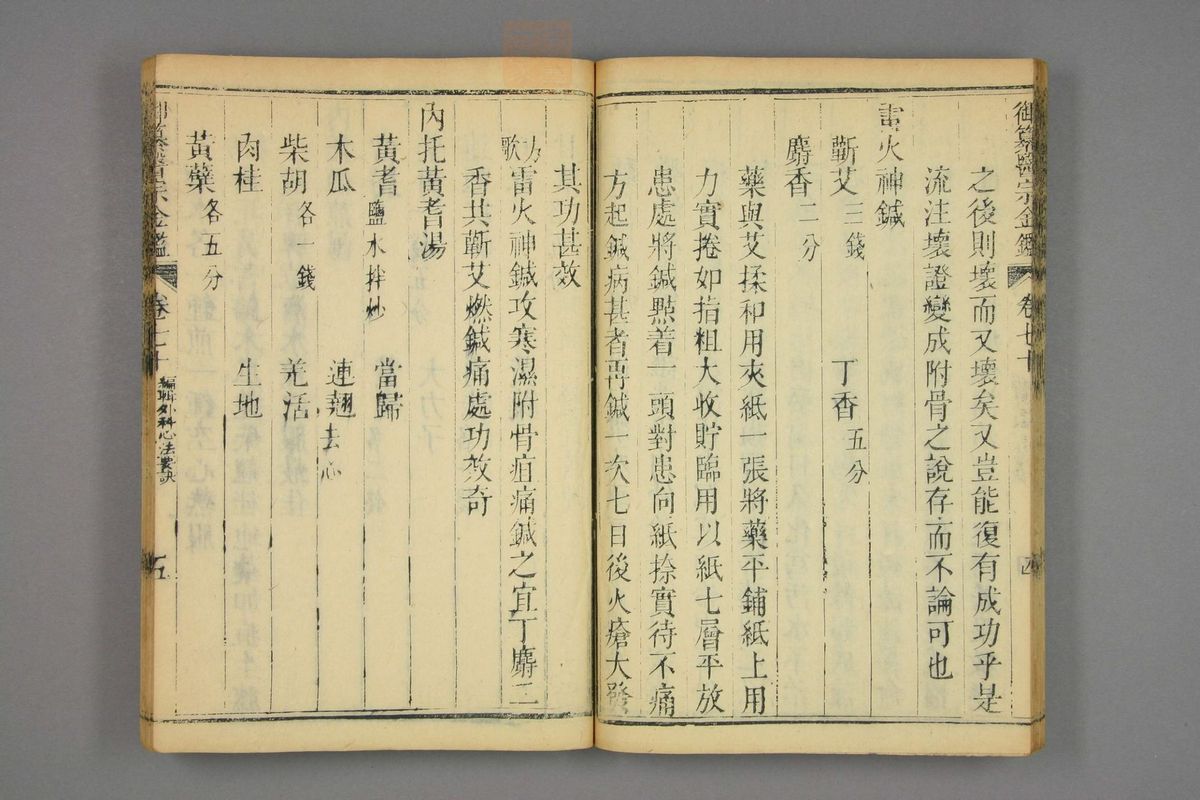 御纂醫宗金鑑 卷七十 四
之後則壞而又壞矣又豈能復有成功乎是
流注壞證變成附骨之說存而不論可也
雷火神鍼
蘄艾三錢 丁香五分
麝香二分
藥與艾揉和用夾紙一張將藥平鋪紙上用
力實捲如指粗大收貯臨用以紙七層平放
患處將鍼點着一頭對患向紙捺實待不痛
方起鍼病甚者再鍼一次七日後火瘡大發
其功甚效
方歌 雷火神鍼攻寒濕附骨疽痛鍼之宜丁麝二
香共蘄艾燃鍼痛處功效奇
內托黃耆湯
黃耆鹽水拌炒 當歸
木瓜 連翹去心
柴胡各一錢 羌活
肉桂 生地
黃蘗各五分
御纂醫宗金鑑 卷七十 編輯外科心法要訣 五